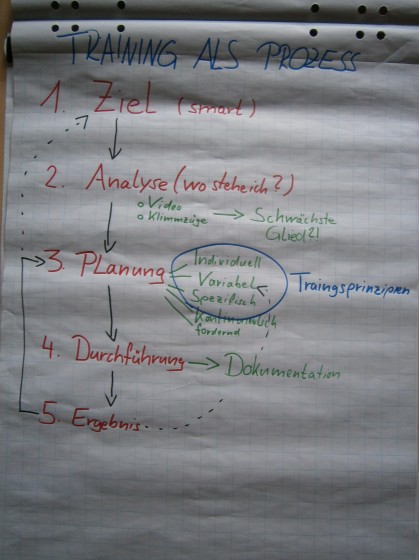 TRAINING ALS PROZESS
1. Ziel (smart)
2. Analyse (wo stehe ich?)
o Video
o Klimmzüge
Schwächste
Glied?!
3. Planung
Individuell
Variabel
Spezifisch
Kontinuierlich
fordernd
Traingsprinzipien
4. Durchführung
Dokumentation
5. Ergebnis